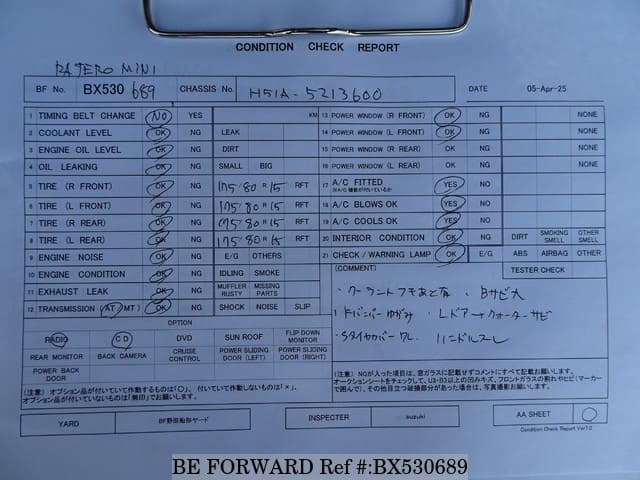 CONDITION CHECK REPORT
PAJERO MINI
BF No. BX530 689 CHASSIS No. H51A-5213600 DATE 05-Apr-25
1 TIMING BELT CHANGE NO YES KM 13 POWER WINDOW (R FRONT) OK NG NONE
2 COOLANT LEVEL OK NG LEAK 14 POWER WINDOW (L FRONT) OK NG NONE
3 ENGINE OIL LEVEL OK NG DIRT 15 POWER WINDOW (R REAR) OK NG NONE
4 OIL LEAKING OK NG SMALL BIG 16 POWER WINDOW (L REAR) OK NG NONE
5 TIRE (R FRONT) OK NG 175/80 R 15 RFT 17 A/C FITTED YES NO
6 TIRE (L FRONT) OK NG 175/80 R 15 RFT 18 A/C BLOWS OK YES NO
7 TIRE (R REAR) OK NG 175/80 R 15 RFT 19 A/C COOLS OK YES NO
8 TIRE (L REAR) OK NG 175/80 R 15 RFT 20 INTERIOR CONDITION OK NG DIRT SMOKING SMELL OTHER SMELL
9 ENGINE NOISE OK NG E/G OTHERS 21 CHECK/WARNING LAMP OK NG E/G ABS AIRBAG OTHER
10 ENGINE CONDITION OK NG IDLING SMOKE (COMMENT) TESTER CHECK
11 EXHAUST LEAK OK NG MUFFLER RUSTY MISSING PARTS
・クーラントフキあと有 ・Bサビ大
12 TRANSMISSION (AT/MT) OK NG SHOCK NOISE SLIP
・Fバンパーゆがみ ・Lドア→クォーターサビ
OPTION
・Sタイヤカバーワレ ハンドルスレ
RADIO CD DVD SUN ROOF FLIP DOWN MONITOR
REAR MONITOR BACK CAMERA CRUISE CONTROL POWER SLIDING DOOR (LEFT) POWER SLIDING DOOR (RIGHT)
POWER BACK DOOR
(注意) オプション品が付いていて作動するものは「○」、付いていて作動しないものは「×」、
オプション品が付いていないものは「無印」でお願いします。
(注意) NGが入った項目は、窓ガラスに記載せずコメントにすべて記載お願いします。
オークションシートをチェックして、U3・B3以上の凹みキズ、フロントガラスの割れやヒビ(マーカー
で囲んで)、その他目立つ破損部分があった場合は、写真撮影お願いします。
YARD BF野田船形ヤード INSPECTER suzuki AA SHEET ○
Condition Check Report Ver7.0
BE FORWARD Ref #:BX530689